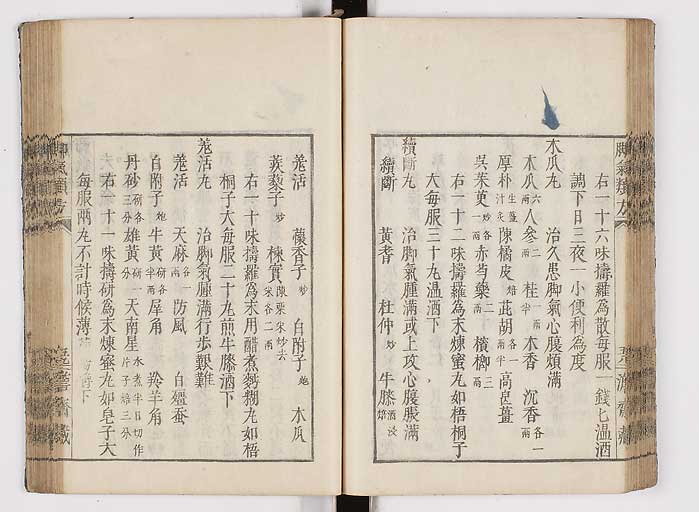 右一十六味擣羅爲散每服一錢匕温酒
調下日三夜一小便利爲度
木瓜丸 治久患脚氣心腹煩滿
木瓜六兩 人參二兩 桂一兩半 木香 沉香各一兩
厚朴生薑汁炙 陳橘皮焙 茈胡各一兩半 高良薑
吳茱萸炒各一兩 赤芍藥二兩 檳榔三兩
右一十二味擣羅爲末煉蜜丸如梧桐子
大每服三十丸温酒下
續斷丸 治脚氣腫滿或上攻心腹脹滿
續斷 黃耆 杜仲炒 牛膝酒浸焙
羗活 蘹香子炒 白附子炮 木瓜
蒺藜子炒 楝實陳粟米炒去米各二兩
右一十味擣羅爲末用醋煮麪糊丸如梧
桐子大每服二十丸煎牛膝酒下
羗活丸 治脚氣腫滿行步艱難
羗活 天麻各一兩 防風 白殭蚕
白附子炮 牛黃研各半兩 犀角 羚羊角
丹砂研各三分 雄黃研一分 天南星水煮半日切作片子焙三分
右一十一味擣研爲末煉蜜丸如皂子大
每服兩丸不計時候薄
脚氣類方
脚氣類方